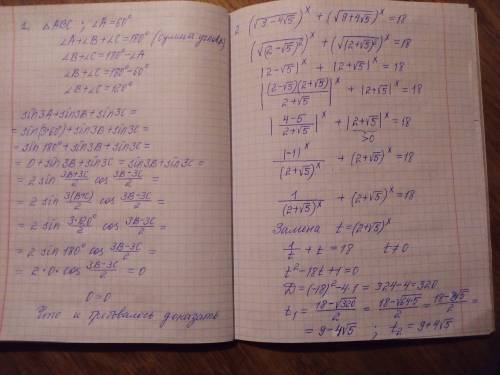 1. △ABC ; ∠A = 60°
∠A+∠B+∠C = 180° (сумма углов)
∠B+∠C = 180°-∠A
∠B+∠C = 180°-60°
∠B+∠C = 120°
sin3A+sin3B+sin3C =
= sin(3·60°)+sin3B+sin3C =
= sin 180°+sin3B+sin3C =
= 0+sin3B+sin3C = sin3B+sin3C =
= 2 sin (3B+3C)/2 cos (3B-3C)/2 =
= 2 sin 3(B+C)/2 cos (3B-3C)/2 =
= 2 sin (3·120°)/2 cos (3B-3C)/2 =
= 2 sin 180° cos (3B-3C)/2 =
= 2·0·cos (3B-3C)/2 = 0
0=0
Что и требовалось доказать
2 (√(9-4√5))^x + (√(9+4√5))^x = 18
(√((2-√5)²))^x + (√((2+√5)²))^x = 18
|2-√5|^x + |2+√5|^x = 18
|(2-√5)(2+√5)/(2+√5)|^x + |2+√5|^x = 18
|(4-5)/(2+√5)|^x + |2+√5|^x = 18
>0
|-1|^x/(2+√5)^x + (2+√5)^x = 18
1/(2+√5)^x + (2+√5)^x = 18
Замена t=(2+√5)^x
1/t + t = 18 t≠0
t²-18t+1=0
D=(-18)²-4·1 = 324-4=320
t₁ = (18-√320)/2 = (18-√64·5)/2 = (18-8√5)/2 =
= 9-4√5 ; t₂ = 9+4√5